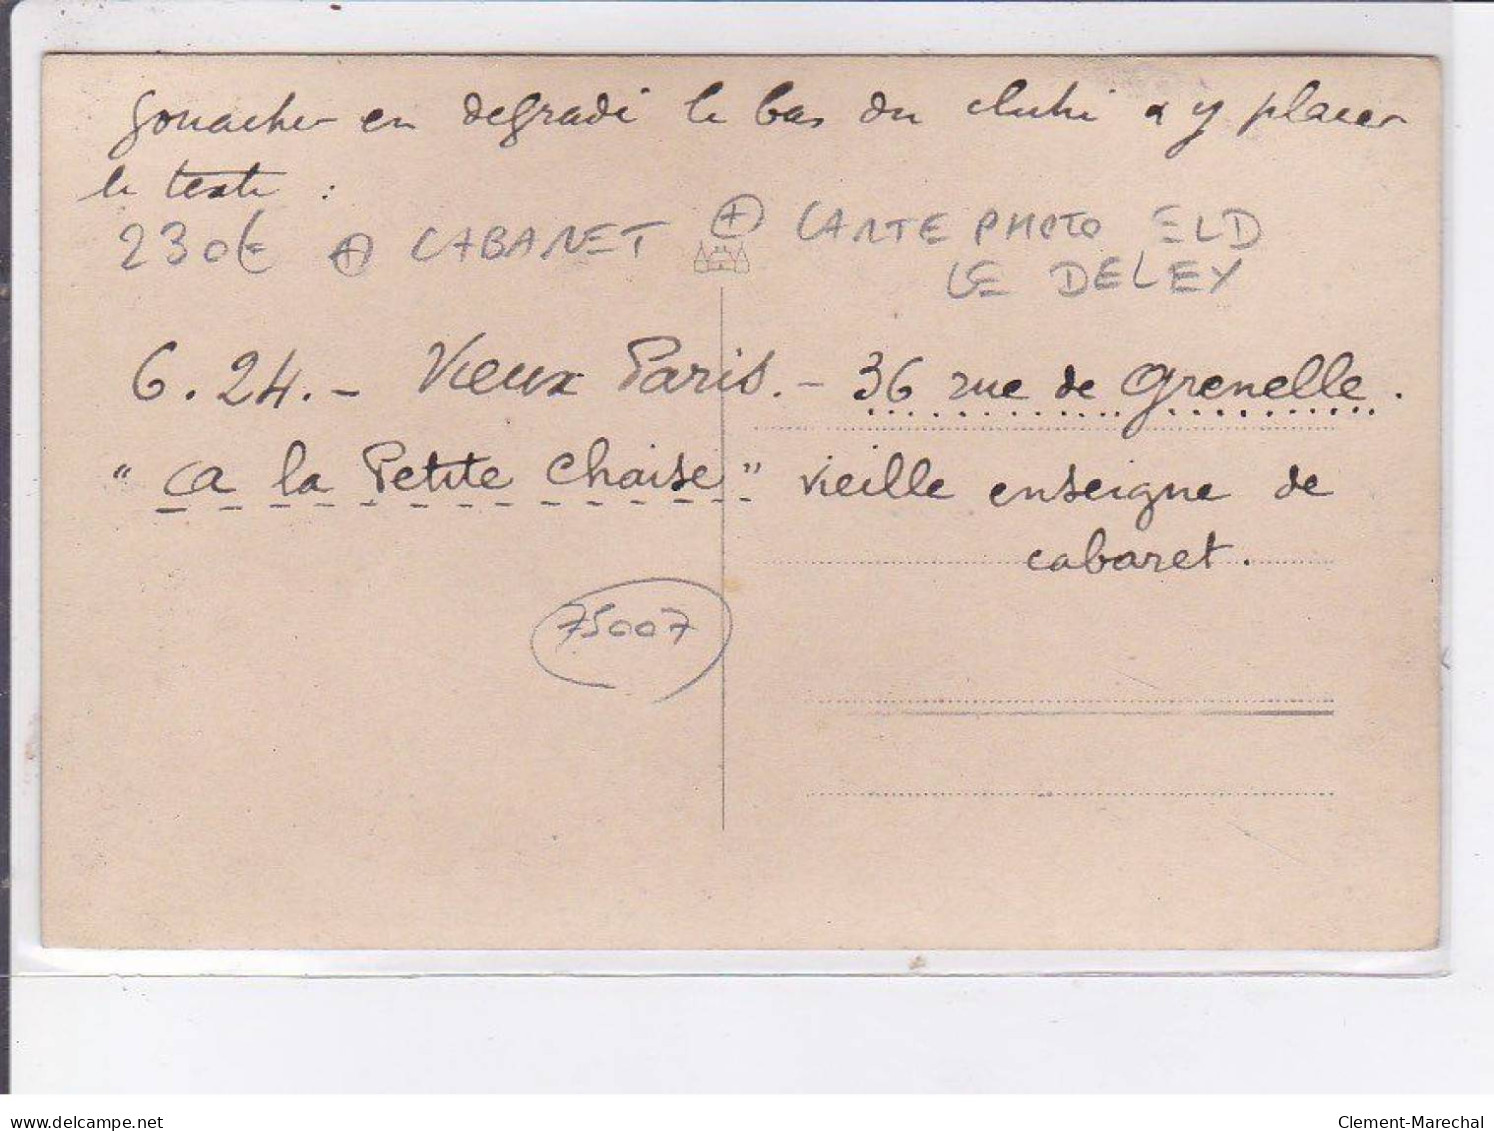 gouacher en degradé le bas du cliché & y placer
le texte :
230€ + CABARET + CARTE PHOTO ELD
LE DELEY
6.24.- Vieux Paris. - 36 rue de Grenelle.
" a la Petite Chaise " vieille enseigne de
cabaret.
75007
delcampe.net
Clement-Marechal